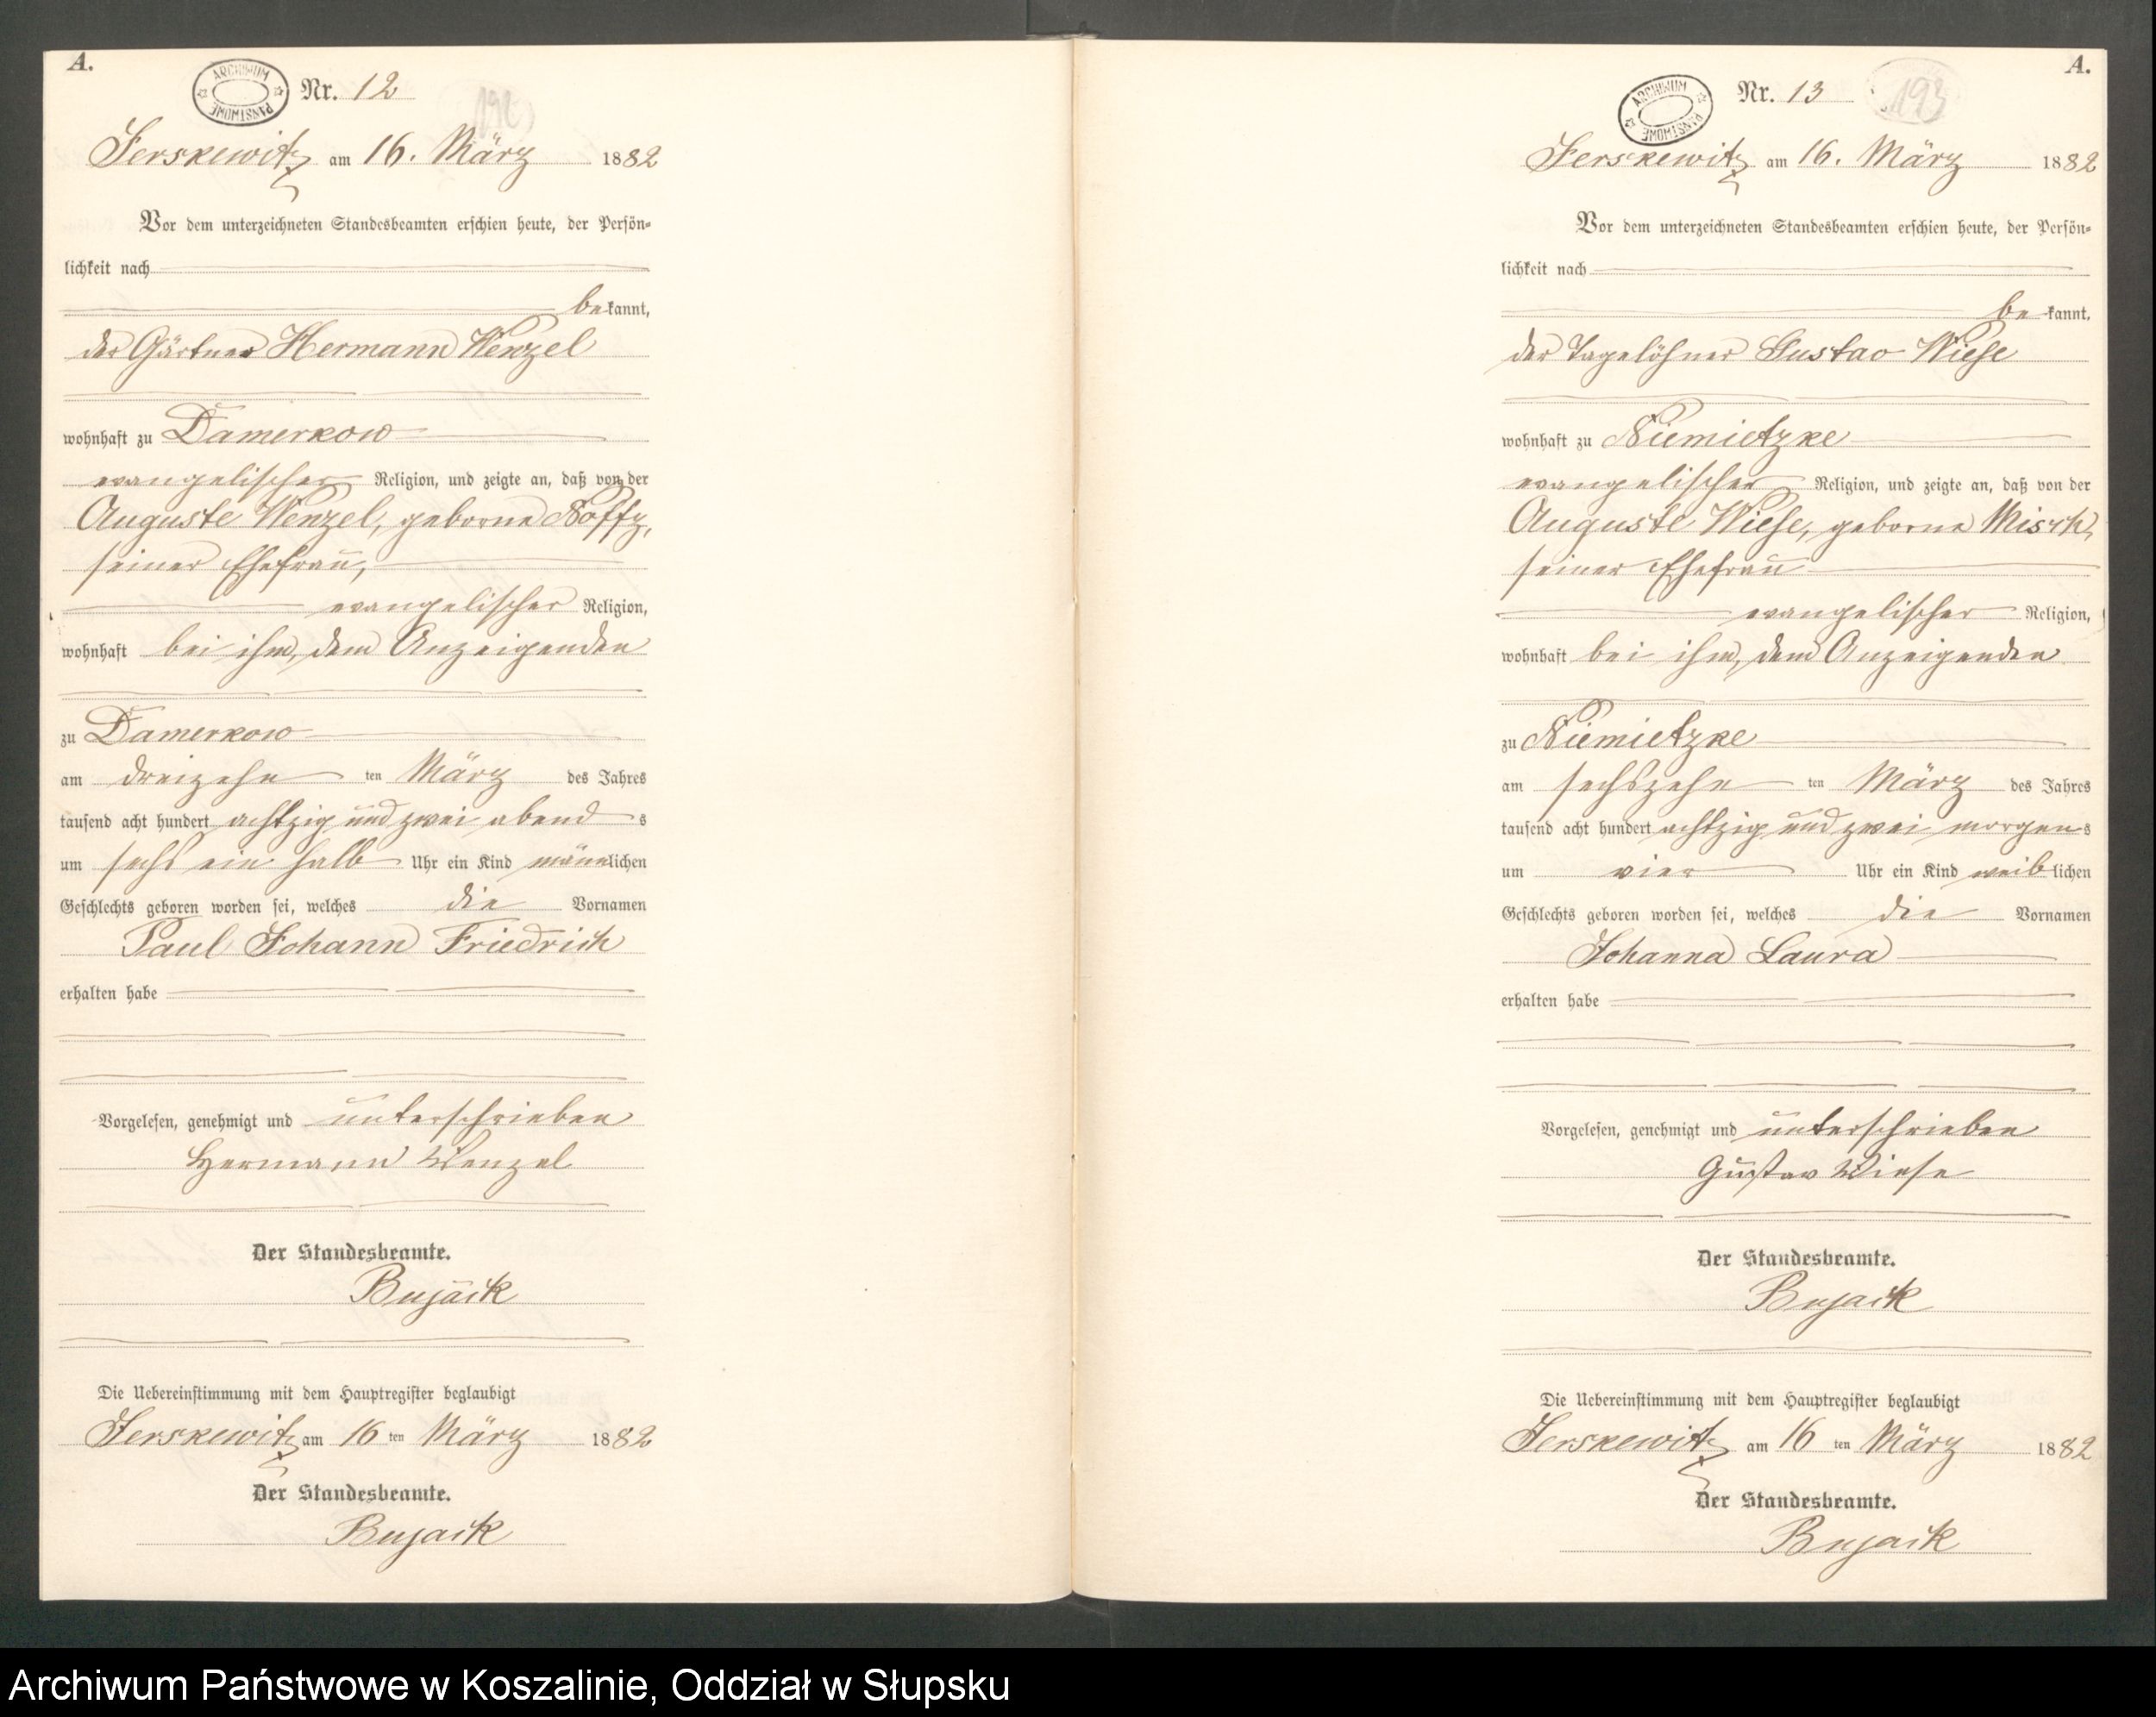 A.
ARCHIWUM PAŃSTWOWE
Nr. 12
192
Jerskewitz am 16. März 1882
Vor dem unterzeichneten Standesbeamten erschien heute, der Persön-
lichkeit nach
bekannt,
der Gärtner Hermann Wenzel
wohnhaft zu Damerkow
evangelischer Religion, und zeigte an, daß von der
Auguste Wenzel, geborne Noffz,
seiner Ehefrau,
evangelischer Religion,
wohnhaft bei ihm, dem Anzeigenden
zu Damerkow
am dreizehn ten März des Jahres
tausend acht hundert achtzig und zwei abend s
um sechs ein halb Uhr ein Kind männlichen
Geschlechts geboren worden sei, welches die Vornamen
Paul Johann Friedrich
erhalten habe
Vorgelesen, genehmigt und unterschrieben
Hermann Wenzel
Der Standesbeamte.
Bujack
Die Uebereinstimmung mit dem Hauptregister beglaubigt
Jerskewitz am 16 ten März 1882
Der Standesbeamte.
Bujack
A.
ARCHIWUM PAŃSTWOWE
Nr. 13
193
Jerskewitz am 16. März 1882
Vor dem unterzeichneten Standesbeamten erschien heute, der Persön-
lichkeit nach
bekannt,
der Tagelöhner Gustav Wiese
wohnhaft zu Niemietzke
evangelischer Religion, und zeigte an, daß von der
Auguste Wiese, geborne Misch,
seiner Ehefrau
evangelischer Religion,
wohnhaft bei ihm, dem Anzeigenden
zu Niemietzke
am sechszehn ten März des Jahres
tausend acht hundert achtzig und zwei morgens
um vier Uhr ein Kind weiblichen
Geschlechts geboren worden sei, welches die Vornamen
Johanna Laura
erhalten habe
Vorgelesen, genehmigt und unterschrieben
Gustav Wiese
Der Standesbeamte.
Bujack
Die Uebereinstimmung mit dem Hauptregister beglaubigt
Jerskewitz am 16 ten März 1882
Der Standesbeamte.
Bujack
Archiwum Państwowe w Koszalinie, Oddział w Słupsku